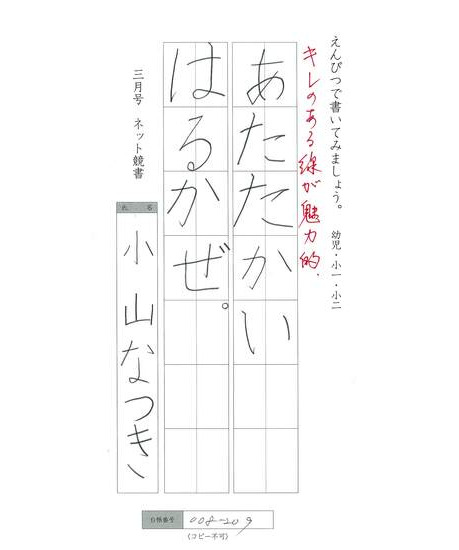 えんぴつで書いてみましょう。 幼児・小一・小二
キレのある線が魅力的.
あたたかい
はるかぜ。
三月号 ネット競書
氏名
小山なつき
自帳番号 008-209
(コピー不可)